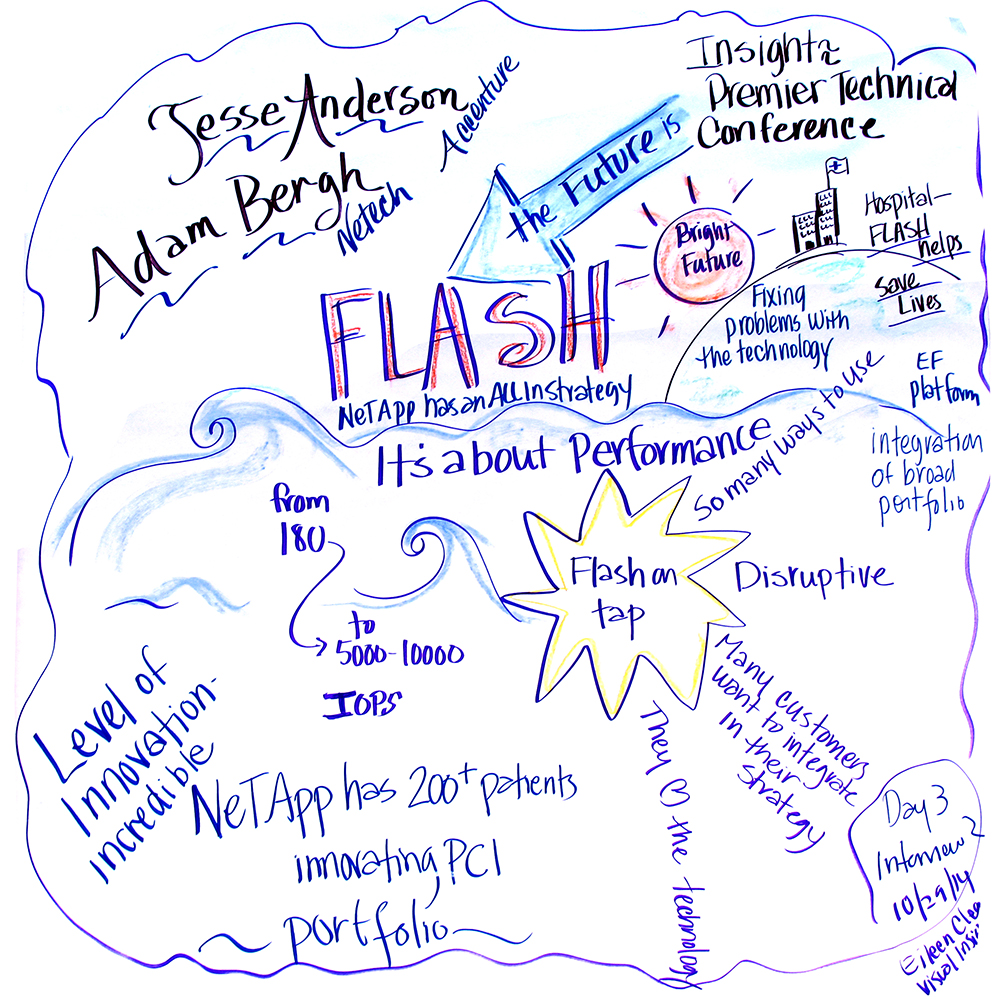 Jesse Anderson
Accenture
Adam Bergh
Netech
Insight ~
Premier Technical
Conference
the Future is
FLASH
NeTApp has an ALL In strategy
Bright
Future
Hospital-
FLASH
helps
Save
Lives
Fixing
problems with
the technology
EF
platform
It's about Performance
So many ways to use
integration
of broad
portfolio
from
180
to
5000-10000
IOPS
Flash on
tap
Disruptive
Many customers
want to integrate
In their
Strategy
They ♡ the technology
Level of
Innovation-
incredible
NeTApp has 200+ patients
innovating, PCI
portfolio
Day 3
Interview 2
10/29/14
Eileen Clea
Visual Insi